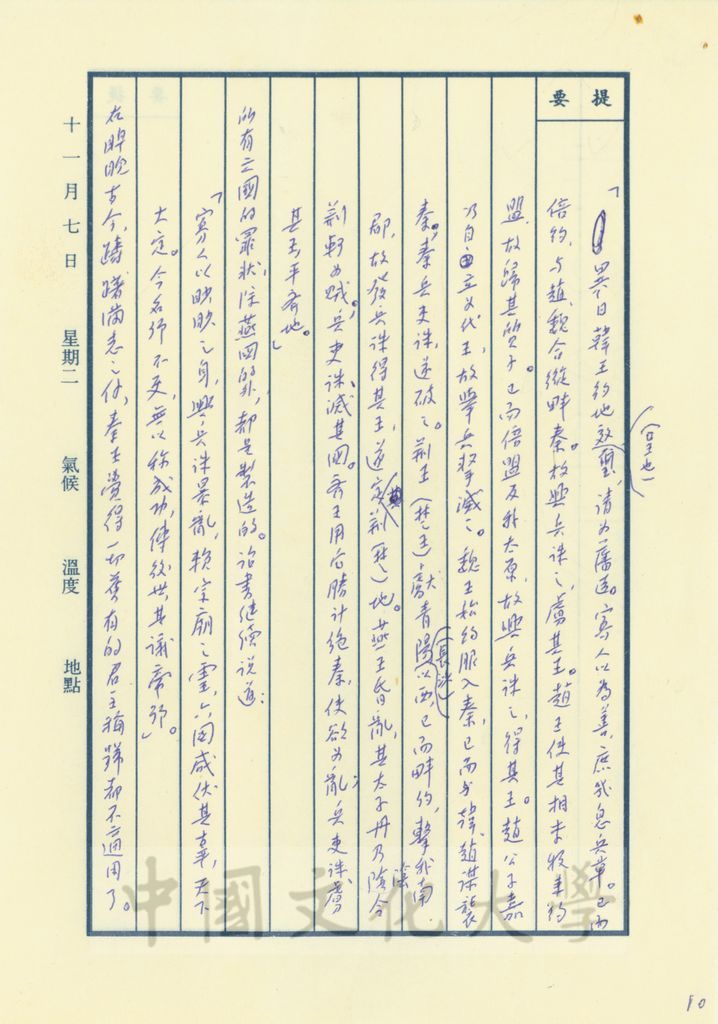 提要
「異日韓王納地效璽（王也），請為藩臣。寡人以為善，庶幾息兵革。已而
倍約，与趙、魏合縱畔秦。故興兵誅之，虜其王。趙王使其相李牧來約
盟，故歸其質子。已而倍盟反我太原，故興兵誅之，得其王。趙公子嘉
乃自立为代王，故舉兵擊滅之。魏王始約服入秦，已而与韓、趙謀襲
秦。秦兵吏誅，遂破之。荊王（楚王）獻青陽（長沙）以西，已而畔約，擊我南
郡，故發兵誅得其王，遂定其荊（楚）地。燕王昏亂，其太子丹乃陰令
荊軻为賊。兵吏誅，滅其國。齊王用后勝計絶秦使，欲为亂；兵吏誅虜
其王，平齊地。」
所有六國的罪狀，除燕國的外，都是製造的。詔書繼續說道：
「寡人以眇眇之身，興兵誅暴亂，賴宗廟之靈，六國咸伏其辜，天下
大定。今名号不更，無以称成功，傳後世。其議帝号。」
在睥睨古今，躊躇滿志之餘，秦王覺得一切舊有的君主稱號都不適用了。
十一月七日 星期二 氣候 溫度 地點
中國文化大學
10